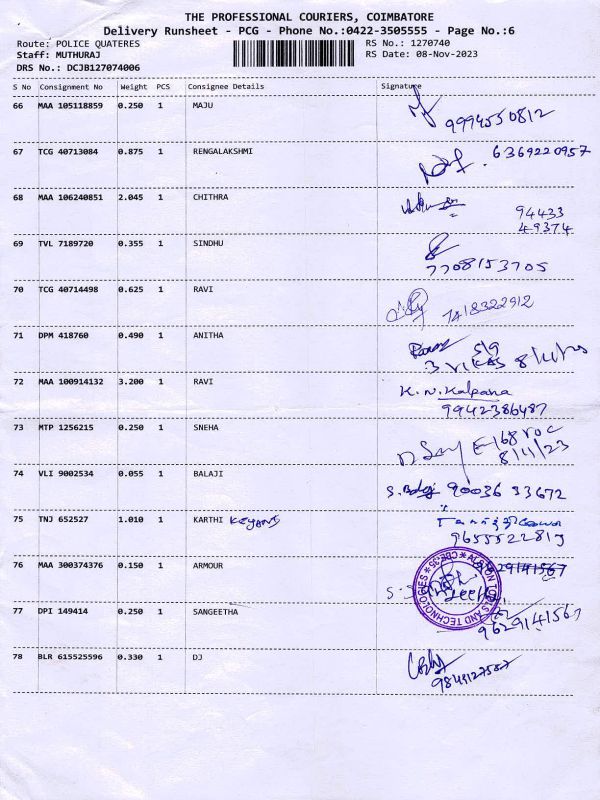 THE PROFESSIONAL COURIERS, COIMBATORE
Delivery Runsheet - PCG - Phone No.:0422-3505555 - Page No.:6
Route: POLICE QUATERES RS No.: 1270740
Staff: MUTHURAJ RS Date: 08-Nov-2023
DRS No.: DCJB127074006
S No Consignment No Weight PCS Consignee Details Signature
66 MAA 105118859 0.250 1 MAJU
9994550812
67 TCG 40713084 0.875 1 RENGALAKSHMI 6369220957
68 MAA 106240851 2.045 1 CHITHRA
94433
49374
69 TVL 7189720 0.355 1 SINDHU
7708153705
70 TCG 40714498 0.625 1 RAVI
7418322912
71 DPM 418760 0.490 1 ANITHA
72 MAA 100914132 3.200 1 RAVI K.N.Kalpana
9942386487
73 MTP 1256215 0.250 1 SNEHA
8/11/23
74 VLI 9002534 0.055 1 BALAJI
S. Balaji 90036 93672
75 TNJ 652527 1.010 1 KARTHI KEYANI
9655522819
76 MAA 300374376 0.150 1 ARMOUR 9629141567
77 DPI 149414 0.250 1 SANGEETHA
9629141567
78 BLR 615525596 0.330 1 DJ